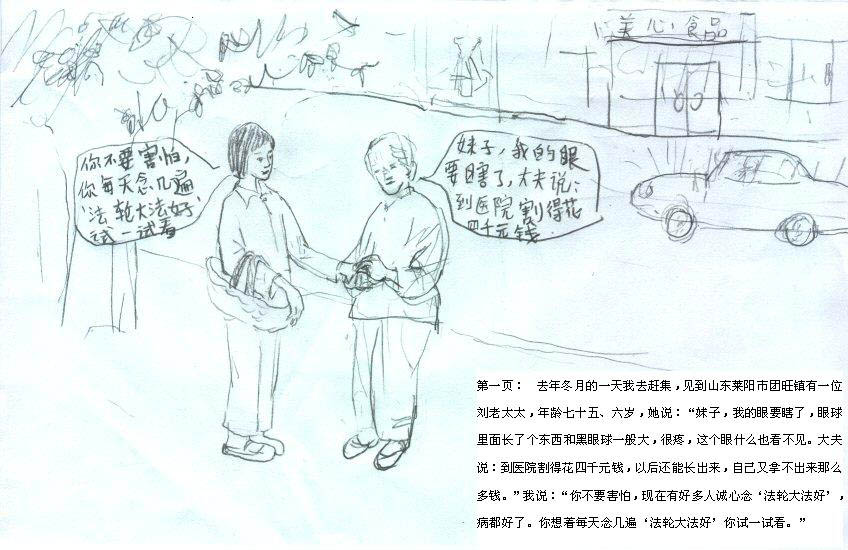 美心食品
你不要害怕，
你每天念几遍
‘法轮大法好’
试一试看
妹子，我的眼
要瞎了，大夫说：
到医院割得花
四千元钱
第一页： 去年冬月的一天我去赶集，见到山东莱阳市团旺镇有一位
刘老太太，年龄七十五、六岁，她说：“妹子，我的眼要瞎了，眼球
里面长了个东西和黑眼球一般大，很疼，这个眼什么也看不见。大夫
说：到医院割得花四千元钱，以后还能长出来，自己又拿不出来那么
多钱。”我说：“你不要害怕，现在有好多人诚心念‘法轮大法好’，
病都好了。你想着每天念几遍‘法轮大法好’你试一试看。”